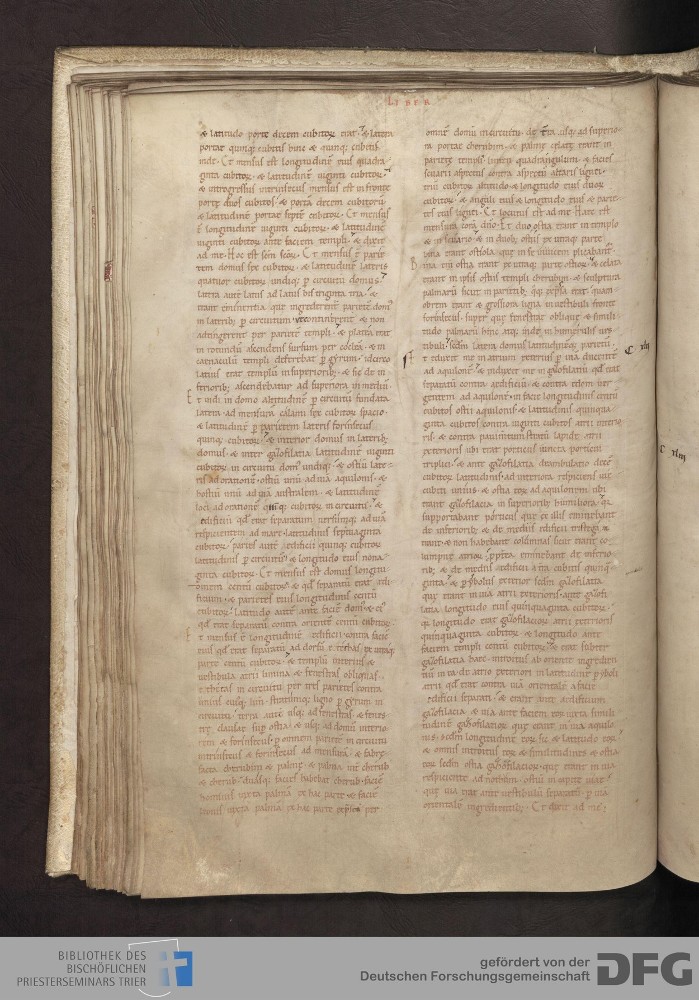 LIBER
& latitudo porte decem cubitorū erat & latera
portae quinq; cubitis hinc & quinq; cubitis
inde. Et mensus est longitudinē eius quadra
ginta cubitorū & latitudinē uiginti cubitorū
& introgressus intrinsecus mensus est in fronte
porte duos cubitos & portā decem cubitorū
& latitudinē portae septē cubitorū. Et mensus
ē longitudinē uiginti cubitorū & latitudinē
uiginti cubitorū ante faciem templi & dixit
ad me. Hoc est scm̄ scōꝝ. Et mensus ē parie
tem domus sex cubitorū & latitudinē lateris
quatuor cubitorū undiq; p circuitū domus
latera aute latus ad latus bis triginta tria &
erant eminentia que ingrederent parietē dom'
in laterib; p circuitum ut continerent & non
adtingerent per parietē templi & platea erat
in rotundū ascendens sursum per cocleā & in
caenaculū templi deferebat p gyrum idcirco
latius erat templū in superiorib; & sic de in
ferioribꝫ ascendebatur ad superiora in mediū
Et uidi in domo altitudinē p circuitū fundata
latera ad mensura calami sex cubitorū spacio
& latitudinē p parietem lateris forinsecus
quinq; cubitorū & interior domus in laterib;
domus & inter gazofilatia latitudinē uiginti
cubitorū in circuitu dom' undiq; & ostiū late
ris ad orationē ostiū unū ad uiā aquilonis &
hostiū unū ad uiā australem & latitudinē
loci ad orationē quinq; cubitorū in circuitu &
edificiū qd erat separatum uersūq; ad uiā
respicientem ad mare latitudinis septuaginta
cubitorū paries aute edificii quinq; cubitorū
latitudinis p circuitū & longitudo eius nona
ginta cubitorū. Et mensus est domus longitu
dinem centū cubitorū & qd separatū erat edi
ficium & parietes eius longitudinis centū
cubitorū latitudo aute ante faciē dom' & ei'
qd erat separatū contra orientē centū cubitorū
Et mensus ē longitudinē edificii contra faciē
eius qd erat separatū ad dorsū & ethecas ex utraq;
parte centū cubitorū & templū interius &
uestibula atrii limina & fenestras obliquas
& ethecas in circuitu per tres partes contra
unius cuiusq; limē stratumq; ligno p gyrum in
circuitu terra aute usq; ad fenestras & fenes
tre clausae sup ostia & usq; ad domū interio
rem & forinsecus p omnem parietē in circuitu
intrinsecus & forinsecus ad mensurā & fabre
facta cherubim & palme & palma int cherub
& cherub duasq; facies habebat cherub faciē
hominis iuxta palmā ex hac parte & faciē
leonis iuxta palma ex hac parte expssā per
omnē domū in circuitu de tra usq; ad superio
ra portae cherubim & palme celate erant in
pariete templi limen quadrangulum & facies
scuarii aspectus contra aspectū altaris lignei
triū cubitorū altitudo & longitudo eius duorū
cubitorū & anguli eius & longitudo eius & parie
tes eius lignei. Et locutus est ad me Haec est
mensura corā dno. Et duo ostia erant in templo
& in scuario & in duob; ostiis ex utraq; parte
bina erant ostiola que in se inuicem plicabant
Bina eni ostia erant ex utraq; parte ostiorū & celata
erant in ipsis ostiis templi cherubim & sculptura
palmarū sicut in parietib; qq; expssa erat quam
obrem erant & grossiora ligna in uestibuli fronte
forinsecus super que fenestrae oblique & simili
tudo palmarū hinc atq; inde in humerulis ues
tibuli scdm latera domus latitudinēq; parietū
Et eduxit me in atrium exterius p uiā ducentē
C xlii
ad aquilonē & induxit me in gazofilatiū qd erat
separatū contra aedificiū & contra edem uer
gentem ad aquilonē in facie longitudinis centū
cubitos ostii aquilonis & latitudinis quinqua
ginta cubitos contra uiginti cubitos atrii interio
ris & contra pauimentum stratū lapide atrii
exterioris ubi erat porticus iuncta porticui
triplici & ante gazofilatia deambulatio decē
cubitorū latitudinis ad interiora respiciens uiae
cubiti unius & ostia eorū ad aquilonem ubi
erant gazofilacia in superiorib; humiliora qa
supportabant porticus que ex illis eminebant
de inferiorib; & de mediis edificii tristega e
erant & non habebant columnas sicut erant co
lumpne atriorū ppterea eminebant de inferio
rib; & de mediis aedificii a tra cubitis quinq
ginta & pibolus exterior scdm gazofilatia
que erant in uia atrii exterioris ante gazofi
latia longitudo eius quinquaginta cubitorū
qa longitudo erat gazofilaciorū atrii exterioris
quinquaginta cubitorū & longitudo ante
faciem templi centū cubitorū & erat subter
gazofilatia haec introitus ab oriente ingredien
tiū in ea de atrio exteriori in latitudine piboli
atrii qd erat contra uiā orientale a facie
edificii separati & erant ante aedificium
gazofilacia & uia ante faciem eorū iuxta simili
tudinē gazofilatiorū que erant in uia aquilo
nis scdm longitudinē eorū sic & latitudo eorū
& omnis introitus eorū & similitudines & ostia
eorū scdm ostia gazofilaciorū que erant in uia
respiciente ad nothum ostiū in capite uiae
que uia erat ante uestibulū separatū p uiā
orientalē ingredientib;. Et dixit ad me
C xliii
BIBLIOTHEK DES
BISCHÖFLICHEN
PRIESTERSEMINARS TRIER
gefördert von der
Deutschen Forschungsgemeinschaft
DFG